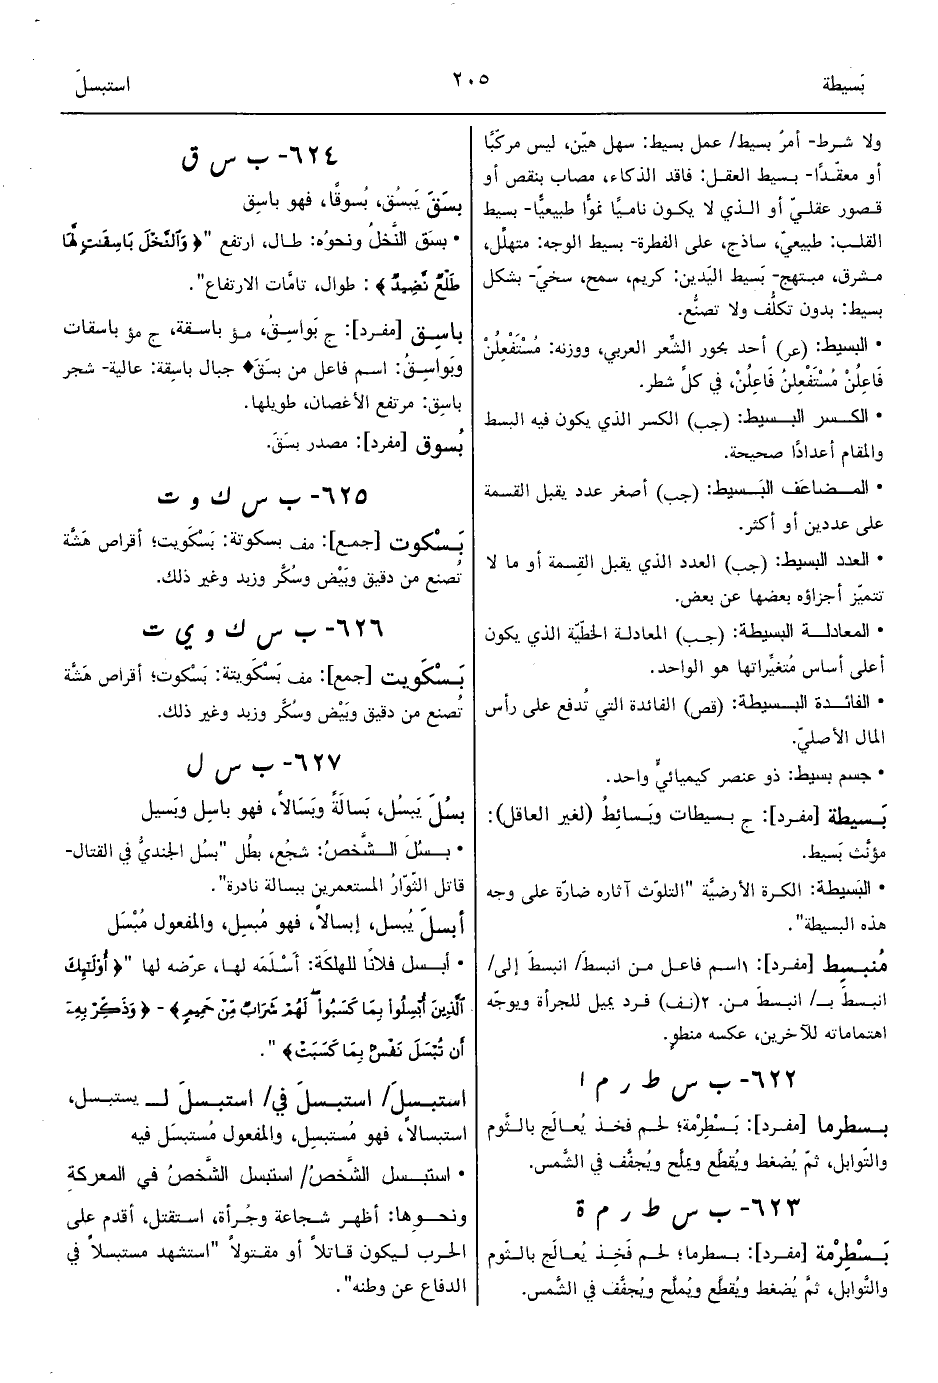 بَسيطة
٢٠٥
استبسلَ
ولا شرط- أمرٌ بسيط/ عمل بسيط: سهل هيِّن، ليس مركّبًا
أو معقّدًا- بسيط العقل: فاقد الذكاء، مصاب بنقص أو
قصور عقليّ أو الذي لا يكون ناميًا نموًّا طبيعيًّا- بسيط
القلب: طبيعيّ، ساذج، على الفطرة- بسيط الوجه: متهلِّل،
مشرق، مبتهج- بَسيط اليَدين: كريم، سمح، سخيّ- بشكل
بسيط: بدون تكلُّف ولا تصنُّع.
• البسيط: (عر) أحد بحور الشِّعر العربي، ووزنه: مُسْتَفْعِلُنْ
فَاعِلُنْ مُسْتَفْعِلنُ فَاعِلُنْ، في كلِّ شطر.
• الكسر البسيط: (جب) الكسر الذي يكون فيه البسط
والمقام أعدادًا صحيحة.
• المضاعَف البَسيط: (جب) أصغر عدد يقبل القسمة
على عددين أو أكثر.
• العدد البسيط: (جب) العدد الذي يقبل القِسمة أو ما لا
تتميّز أجزاؤه بعضها عن بعض.
• المعادلة البسيطة: (جب) المعادلة الخطّيّة الذي يكون
أعلى أساس مُتغيِّراتها هو الواحد.
• الفائدة البسيطة: (قص) الفائدة التي تُدفع على رأس
المال الأصليّ.
• جسم بسيط: ذو عنصر كيميائيٍّ واحد.
بَسيطة [مفرد]: ج بسيطات وبَسائطُ (لغير العاقل):
مؤنَّث بَسيط.
• البَسيطة: الكرة الأرضيَّة "التلوّث آثاره ضارّة على وجه
هذه البسيطة".
مُنبسِط [مفرد]: ١اسم فاعل من انبسطَ/ انبسطَ إلى/
انبسطَ بـ/ انبسطَ من. ٢(نف) فرد يميل للجرأة ويوجِّه
اهتماماته للآخرين، عكسه منطوٍ.
٦٢٢- ب س ط ر م ا
بسطرما [مفرد]: بَسْطِرْمة؛ لحم فخذ يُعالَج بالثّوم
والتّوابل، ثمّ يُضغط ويُقطَّع ويملّح ويُجفَّف في الشَّمس.
٦٢٣- ب س ط ر م ة
بَسْطِرْمة [مفرد]: بسطرما؛ لحم فَخِذ يُعالَج بالثّوم
والتَّوابل، ثمَّ يُضغط ويُقطَّع ويُملَّح ويُجفَّف في الشَّمس.
٦٢٤- ب س ق
بسَقَ يَبسُق، بُسوقًا، فهو باسِق
• بسَق النَّخلُ ونحوُه: طال، ارتفع "﴿ وَٱلنَّخْلَ بَاسِقَٰتٍ لَّهَا
طَلْعٌ نَّضِيدٌ ﴾ : طوال، تامَّات الارتفاع".
باسِق [مفرد]: ج بَواسِقُ، مؤ باسقة، ج مؤ باسقات
وبَواسِقُ: اسم فاعل من بسَقَ♦ جبال باسِقة: عالية- شجر
باسِق: مرتفع الأغصان، طويلها.
بُسوق [مفرد]: مصدر بسَقَ.
٦٢٥- ب س ك و ت
بَسْكوت [جمع]: مف بسكوتة: بَسْكَويت؛ أقراص هَشَّة
تُصنع من دقيق وبَيْض وسُكَّر وزبد وغير ذلك.
٦٢٦- ب س ك و ي ت
بَسْكَويت [جمع]: مف بَسْكَويتة: بَسْكوت؛ أقراص هَشَّة
تُصنع من دقيق وبَيْض وسُكَّر وزبد وغير ذلك.
٦٢٧- ب س ل
بسُلَ يَبسُل، بَسالَةً وبَسَالاً، فهو باسِل وبَسيل
• بسُلَ الشَّخصُ: شجُع، بطُل "بسُل الجنديُّ في القتال-
قاتل الثّوّارُ المستعمرين ببسالة نادرة".
أبسلَ يُبسل، إبسالاً، فهو مُبسِل، والمفعول مُبْسَل
• أبسل فلانًا للهلكة: أسْلَمَه لها، عرّضه لها "﴿ أُوْلَٰٓئِكَ
ٱلَّذِينَ أُبْسِلُوا۟ بِمَا كَسَبُوا۟ لَهُمْ شَرَابٌ مِّنْ حَمِيمٍ ﴾ - ﴿ وَذَكِّرْ بِهِۦٓ
أَن تُبْسَلَ نَفْسٌۢ بِمَا كَسَبَتْ ﴾ ".
استبسلَ/ استبسلَ في/ استبسلَ لـ يستبسل،
استبسالاً، فهو مُستبسِل، والمفعول مُستبسَل فيه
• استبسل الشَّخصُ/ استبسل الشَّخصُ في المعركةِ
ونحوها: أظهر شجاعة وجُرأة، استقتل، أقدم على
الحرب ليكون قاتلاً أو مقتولاً "استشهد مستبسلاً في
الدفاع عن وطنه".